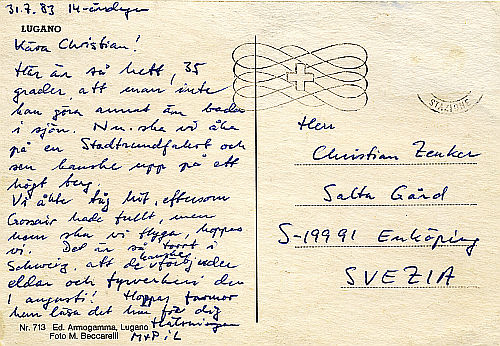 31.7.83 14-
LUGANO
Kära Christian!
Här är så hett, 35
grader, att man inte
kan göra annat än bada
i sjön. Nu ska vi åka
på en Stadtrundfahrt och
sen kanske upp på ett
högt berg.
Vi åkte tåg hit, eftersom
Crossair hade fullt, men
hem ska vi flyga, hoppas
vi. Det är så torrt i
Schweiz, att de kanske förbjuder
eldar och fyrverkeri den
1 augusti! Hoppas farmor
kan läsa det här för dig
Hälsningar
M+P i L
Nr. 713 Ed. Armogamma, Lugano
Foto M. Beccarelli
STAZIONE
Herr
Christian Zenker
Salta Gård
S-19991 Enköping
SVEZIA